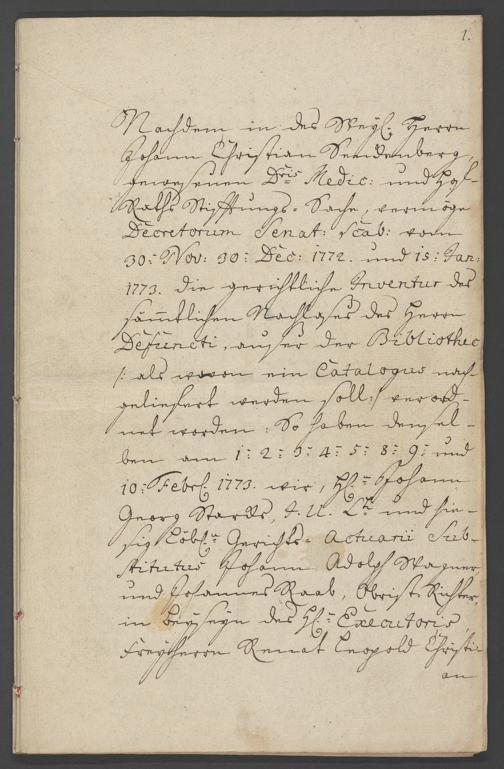 1.
Nachdem in des Weyl. Herrn
Johann Christian Senckenberg,
gewesenen Dris Medic: und Hof-
Raths Stifftungs-Sache, vermöge
Decretorum Senat: Scab: vom
30: Nov: 30: Dec: 1772. und 15: Jan:
1773. die gerichtliche Inventur des
sämtlichen Nachlaßes des Herrn
Defuncti, auser der Bibliothec
/: als wovon ein Catalogus nach
geliefert werden soll :/ verord-
net worden; So haben densel-
ben am 1: 2: 3: 4: 5: 8: 9: und
10: Febr: 1773. wir, H: Johann
Georg J. U. Lt: und hie-
sig Löbl: Gerichts- Actuarii Sub-
stitutus Johann Adolph Wagner
und Johannes Raab, Obrist-Richter,
in beyseyn des H: Executoris,
Freyherrn Renat Leopold Christi-
an